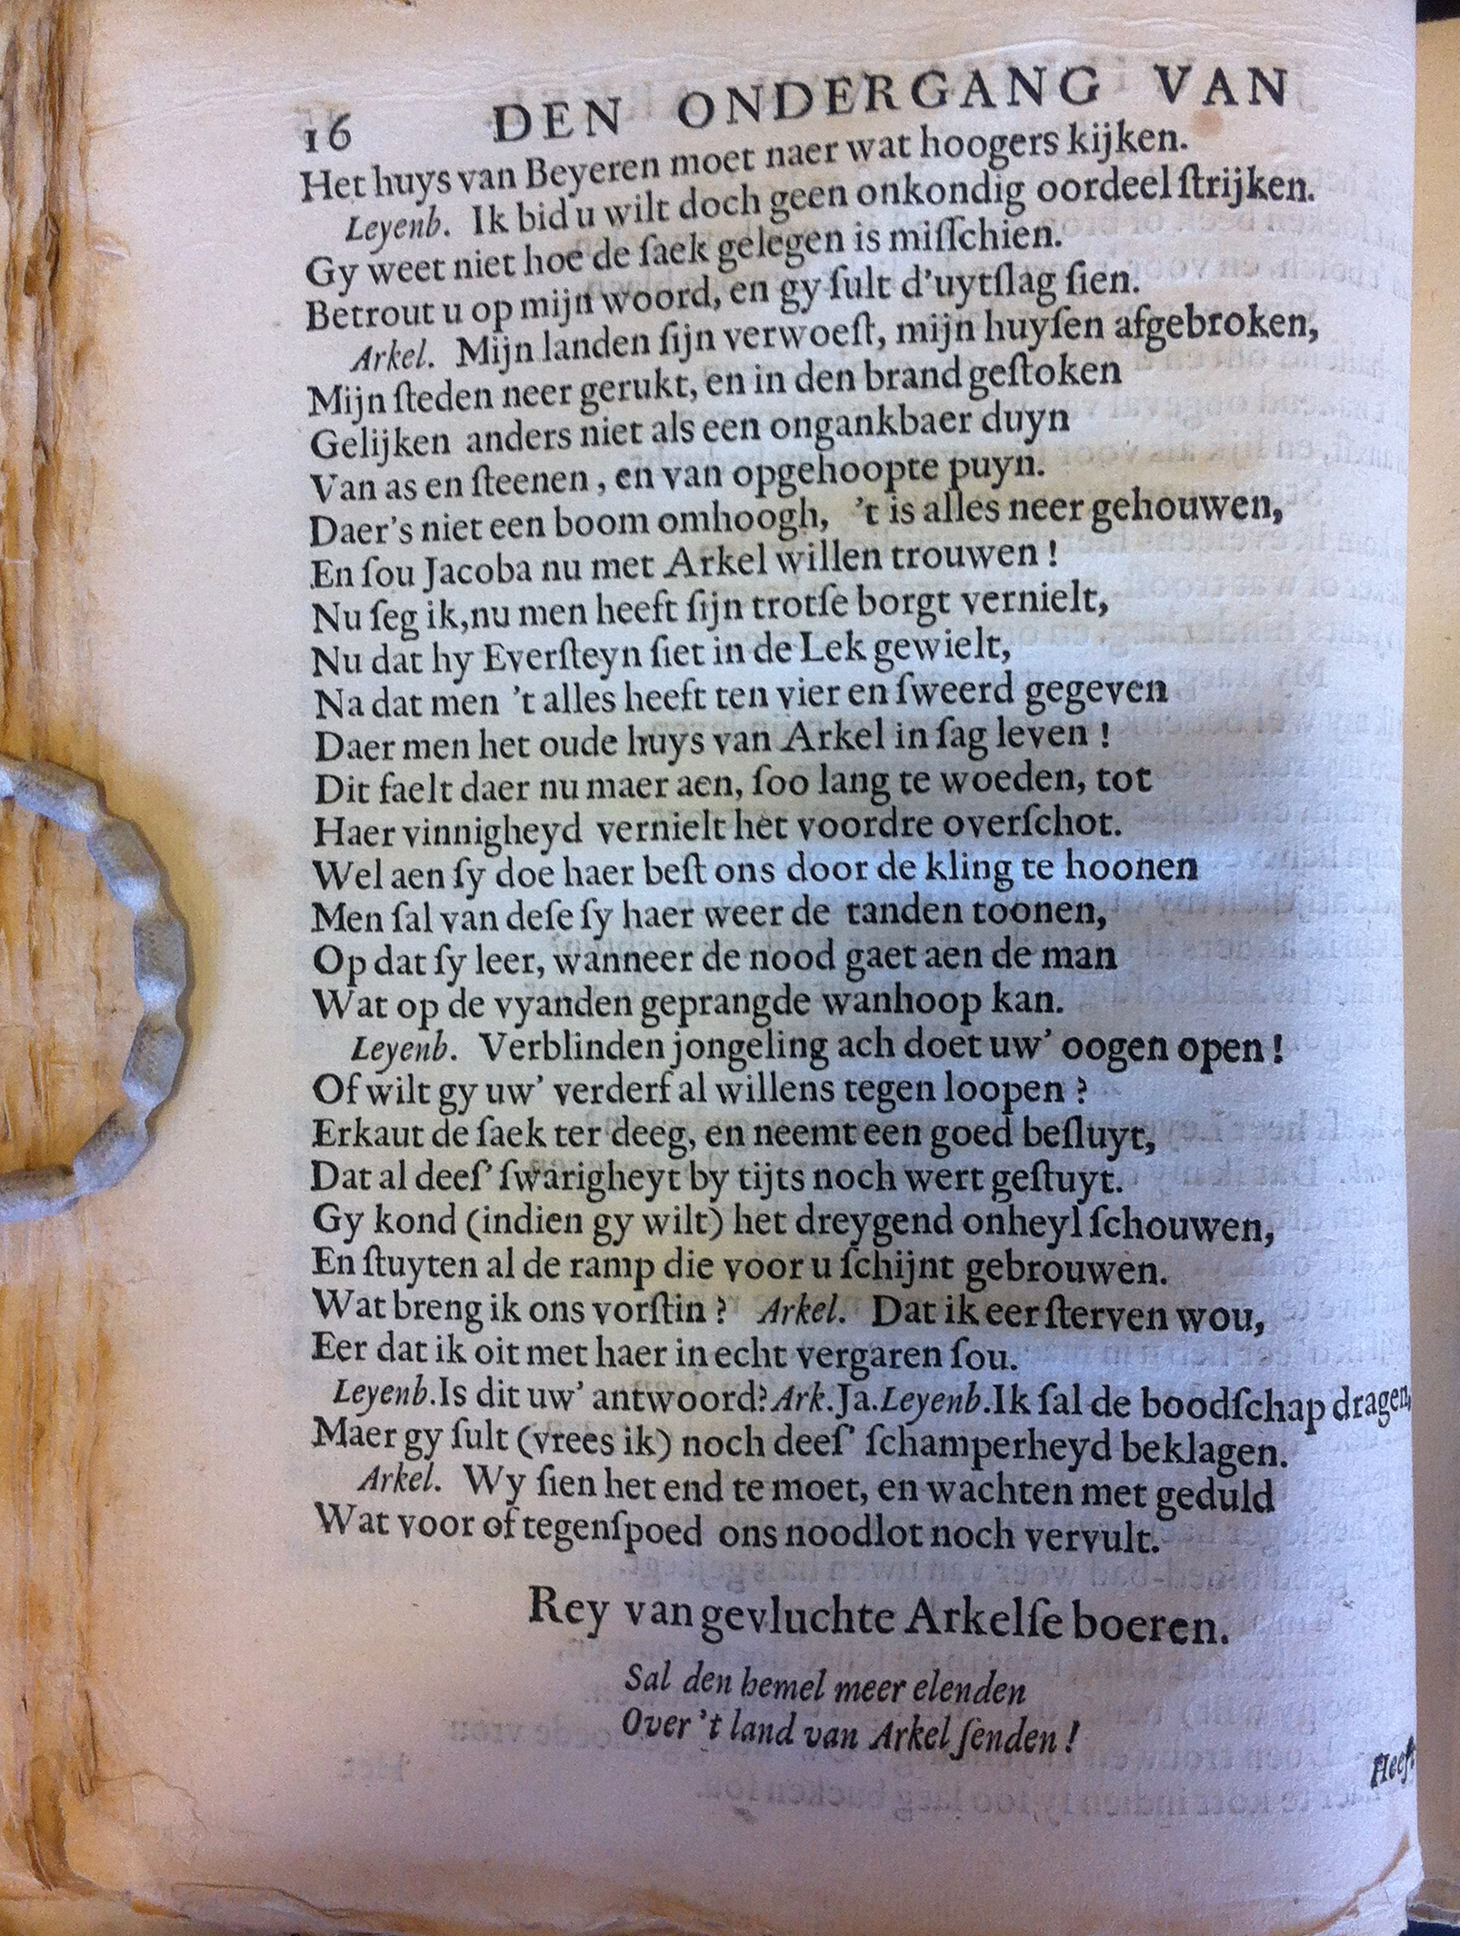 16 DEN ONDERGANG VAN
Het huys van Beyeren moet naer wat hoogers kijken.
Leyenb. Ik bid u wilt doch geen onkondig oordeel ſtrijken.
Gy weet niet hoe de ſaek gelegen is miſſchien.
Betrout u op mijn woord, en gy ſult d'uytſlag ſien.
Arkel. Mijn landen ſijn verwoeſt, mijn huyſen afgebroken,
Mijn ſteden neer gerukt, en in den brand geſtoken
Gelijken anders niet als een ongankbaer duyn
Van as en ſteenen, en van opgehoopte puyn.
Daer's niet een boom omhoogh, 't is alles neer gehouwen,
En ſou Jacoba nu met Arkel willen trouwen!
Nu ſeg ik, nu men heeft ſijn trotſe borgt vernielt,
Nu dat hy Everſteyn ſiet in de Lek gewielt,
Na dat men 't alles heeft ten vier en ſweerd gegeven
Daer men het oude huys van Arkel in ſag leven!
Dit faelt daer nu maer aen, ſoo lang te woeden, tot
Haer vinnigheyd vernielt het voordre overſchot.
Wel aen ſy doe haer beſt ons door de kling te hoonen
Men ſal van deſe ſy haer weer de tanden toonen,
Op dat ſy leer, wanneer de nood gaet aen de man
Wat op de vyanden geprangde wanhoop kan.
Leyenb. Verblinden jongeling ach doet uw' oogen open!
Of wilt gy uw' verderf al willens tegen loopen?
Erkaut de ſaek ter deeg, en neemt een goed beſluyt,
Dat al deeſ' ſwarigheyt by tijts noch wert geſtuyt.
Gy kond (indien gy wilt) het dreygend onheyl ſchouwen,
En ſtuyten al de ramp die voor u ſchijnt gebrouwen.
Wat breng ik ons vorſtin? Arkel. Dat ik eer ſterven wou,
Eer dat ik oit met haer in echt vergaren ſou.
Leyenb. Is dit uw' antwoord? Ark. Ja. Leyenb. Ik ſal de boodſchap dragen,
Maer gy ſult (vrees ik) noch deeſ' ſchamperheyd beklagen.
Arkel. Wy ſien het end te moet, en wachten met geduld
Wat voor of tegenſpoed ons noodlot noch vervult.
Rey van gevluchte Arkelſe boeren.
Sal den hemel meer elenden
Over 't land van Arkel ſenden!
Heeft